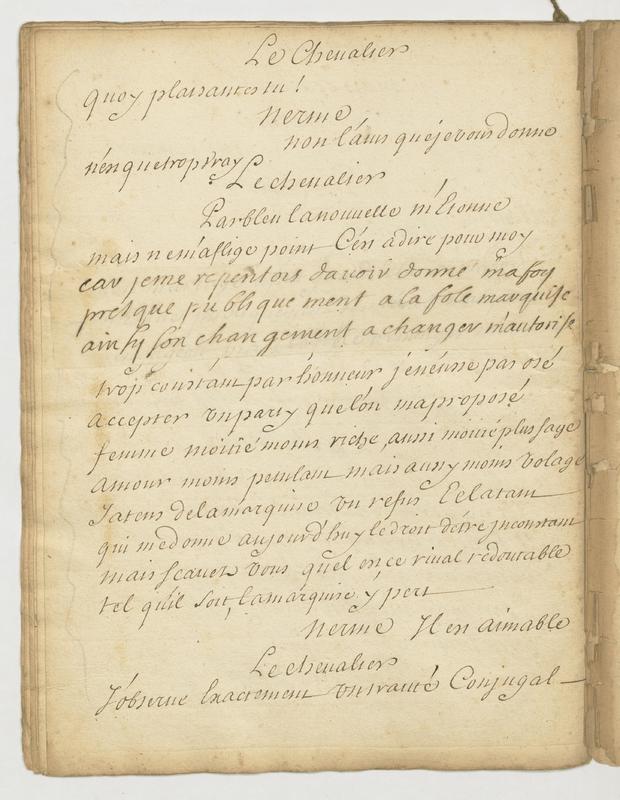 Le Chevalier
quoy plaisantes tu !
Nerine
non l'avis que je vous donne
n'en que trop vray
Le chevalier
Parbleu la nouvelle m'Etonne
mais ne m'aflige point C'en a dire pour moy
car je me repentois davoir donné ma foy
presque publiquement a la fole marquise
ainsy son changement a changer m'autorise
trop constant par honneur je n'eusse pas osé
accepter un party que l'on m'a proposé
femme moitié moins riche, aussi moitié plus sage
amour moins petulant mais aussy moins volage
J'atens de la marquise un refus Eclatant
qui me donne aujourd'huy le droit d'être jnconstant
mais scavez vous quel en ce rival redoutable
tel qu'il soit, la marquise y pert
Nerine Il en aimable
Le chevalier
J'observe Exactement Conjugal